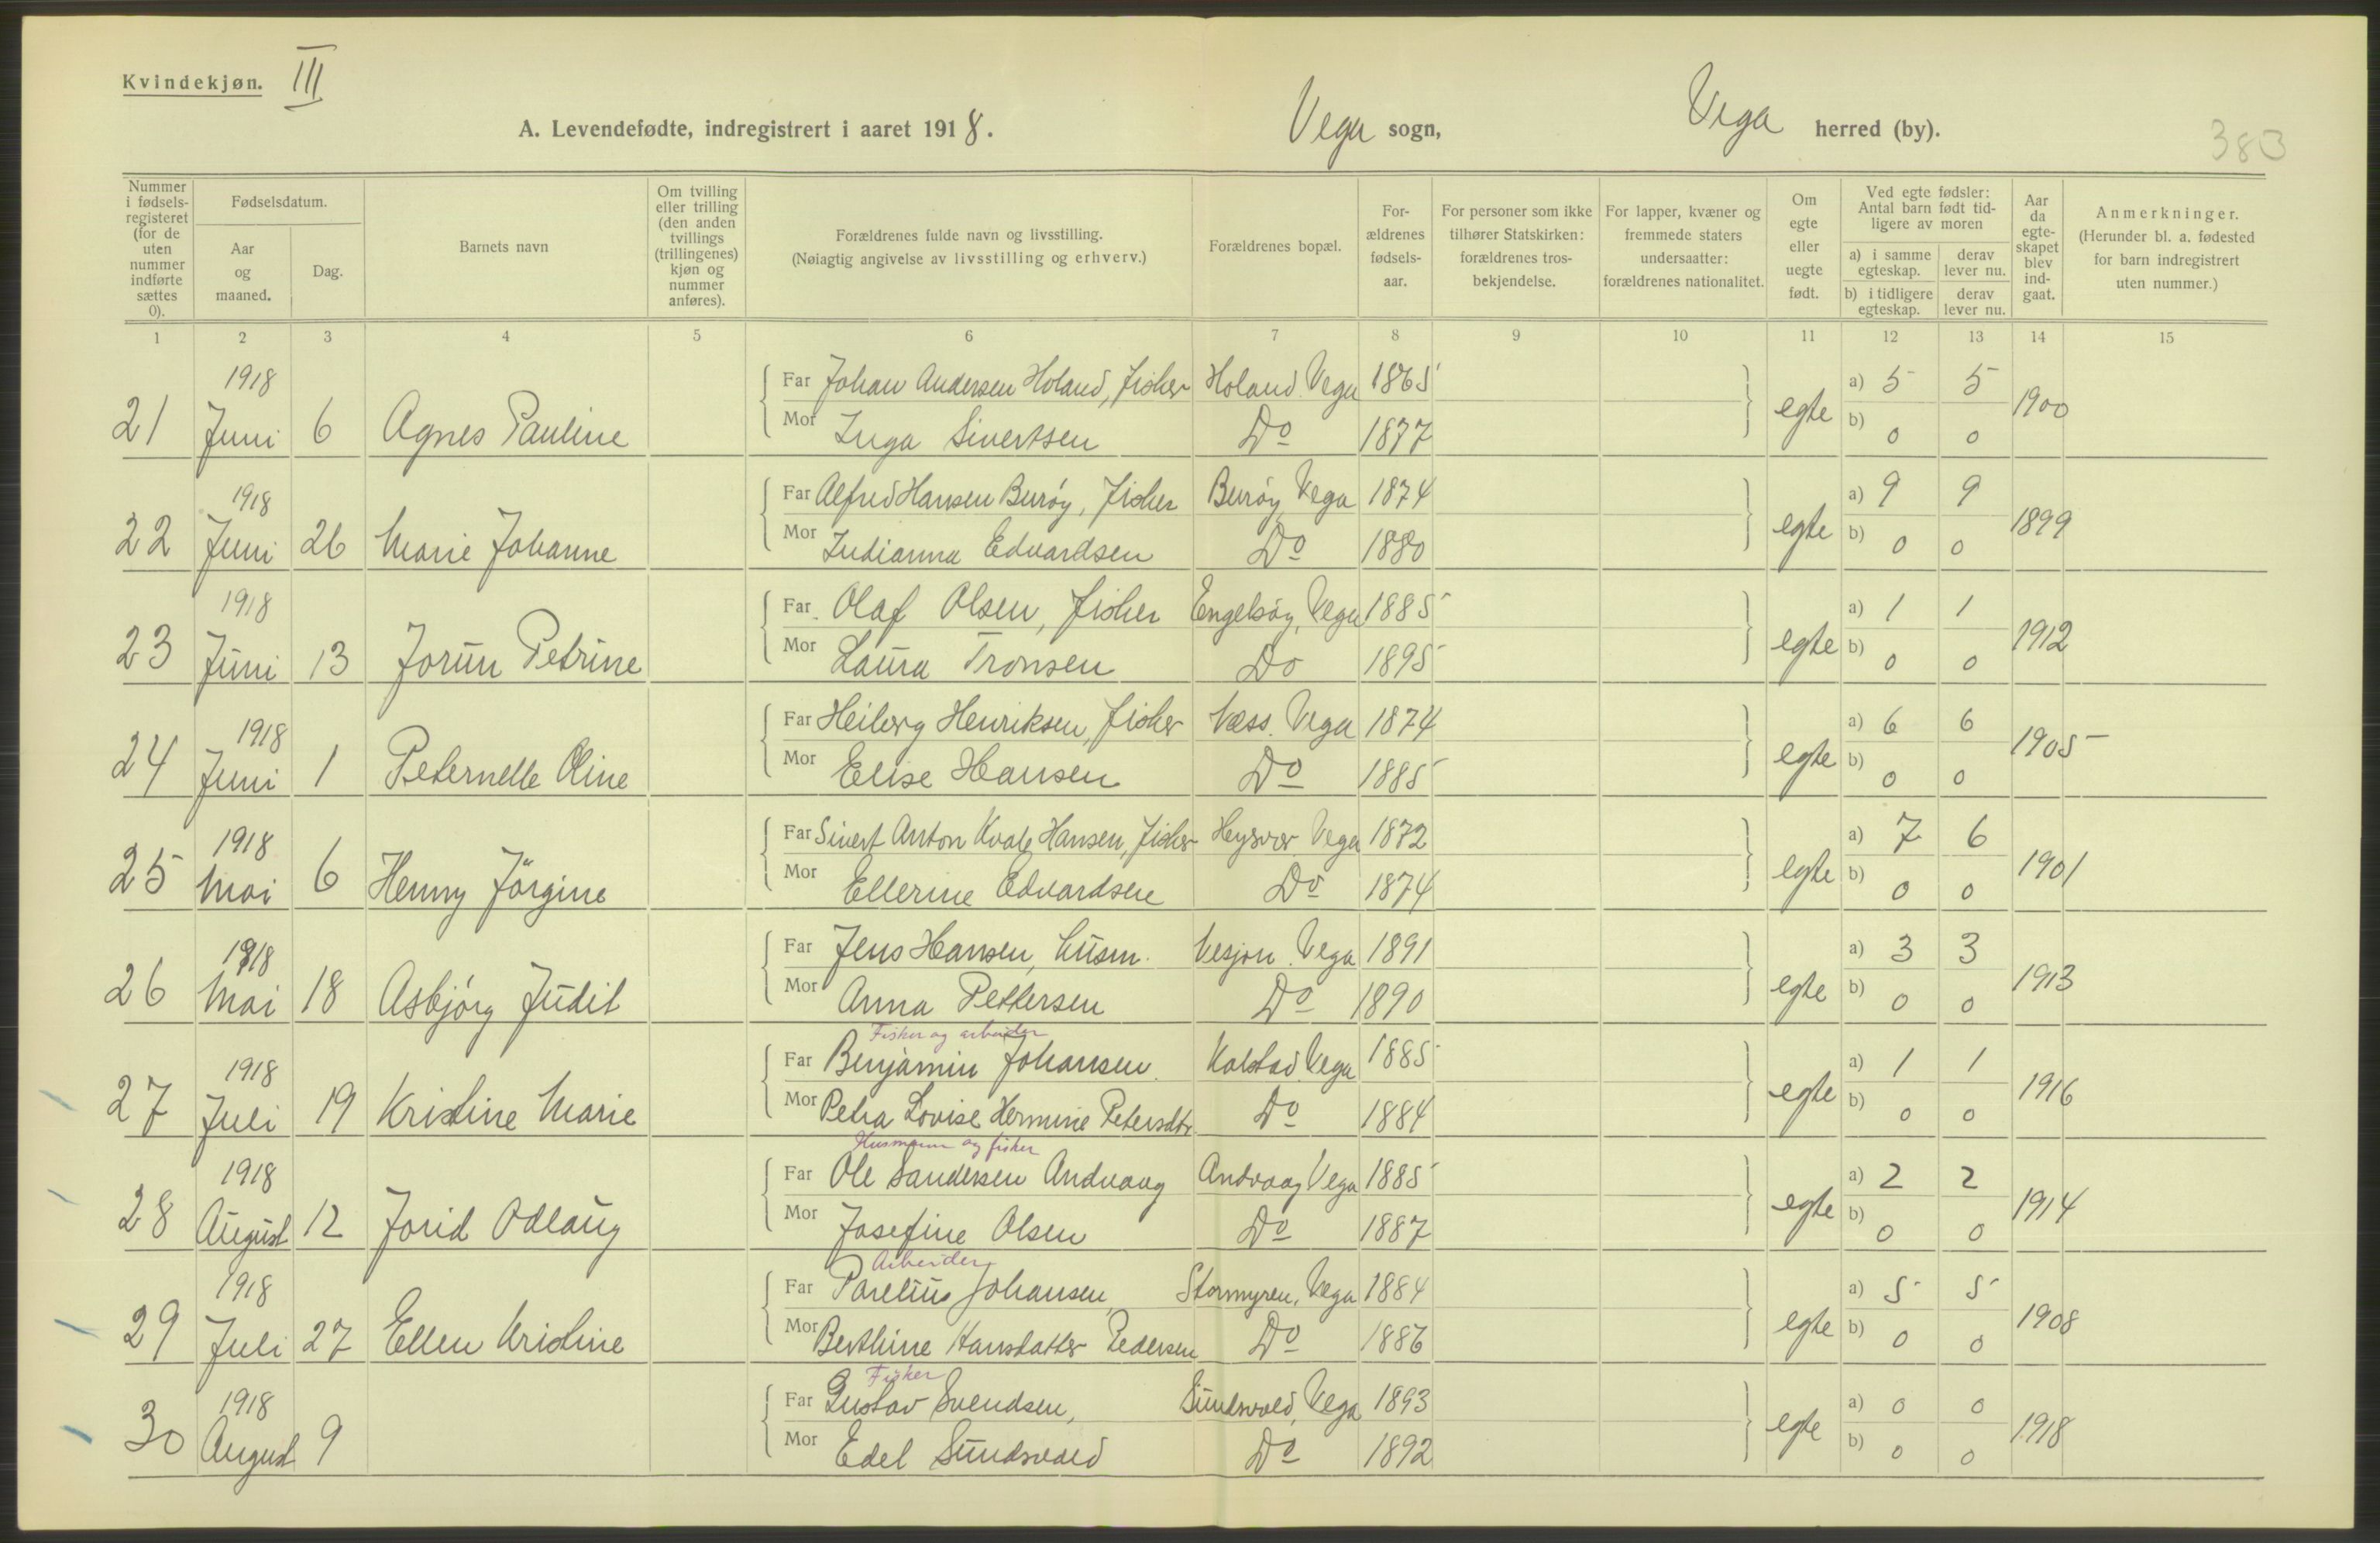 Kvindekjøn. III
A. Levendefødte, indregistrert i aaret 1918. Vega sogn, Vega herred (by).
383
Nummer i fødselsregisteret (for de uten nummer indførte sættes 0).
Fødselsdatum.
Aar og maaned.
Dag.
Barnets navn
Om tvilling eller trilling (den anden tvillings (trillingenes) kjøn og nummer anføres).
Forældrenes fulde navn og livsstilling.
(Nøiagtig angivelse av livsstilling og erhverv.)
Forældrenes bopæl.
Forældrenes fødselsaar.
For personer som ikke tilhører Statskirken: forældrenes trosbekjendelse.
For lapper, kvæner og fremmede staters undersaatter: forældrenes nationalitet.
Om egte eller uegte født.
Ved egte fødsler: Antal barn født tidligere av moren
a) i samme egteskap.
derav lever nu.
b) i tidligere egteskap.
derav lever nu.
Aar da egteskapet blev indgaat.
Anmerkninger.
(Herunder bl. a. fødested for barn indregistrert uten nummer.)
1 2 3 4 5 6 7 8 9 10 11 12 13 14 15
1918 Far Johan Andersen Holand, fisker Holand. Vega 1865 a) 5 5
21 Juni 6 Agnes Pauline Mor Inga Sivertsen Do 1877 egte b) 0 0 1900
1918 Far Alfred Hansen Burøy, fisker Burøy Vega 1874 a) 9 9
22 Juni 26 Marie Johanne Mor Indianna Edvardsen Do 1880 egte b) 0 0 1899
1918 Far Olaf Olsen, fisker Engelsøy, Vega 1885 a) 1 1
23 Juni 13 Jorun Petrine Mor Laura Tronsen Do 1895 egte b) 0 0 1912
1918 Far Heiberg Henriksen, fisker Næss. Vega 1874 a) 6 6
24 Juni 1 Peternelle Oline Mor Elise Hansen Do 1885 egte b) 0 0 1905
1918 Far Sivert Anton Kvale Hansen, fisker Heysvær Vega 1872 a) 7 6
25 Mai 6 Henny Jörgine Mor Ellerine Edvardsen Do 1874 egte b) 0 0 1901
1918 Far Jens Hansen, husm. Vesjon. Vega 1891 a) 3 3
26 Mai 18 Asbjörg Judit Mor Anna Pettersen Do 1890 egte b) 0 0 1913
Fisker og arbeider
1918 Far Benjamin Johansen. Kolstad. Vega 1885 a) 1 1
27 Juli 19 Kristine Marie Mor Petra Lovise Hermine Petersdtr. Do 1884 egte b) 0 0 1916
Husmann og fisker
1918 Far Ole Sandersen Andvaag Andvaag Vega 1885 a) 2 2
28 August 12 Jorid Odlaug Mor Josefine Olsen Do 1887 egte b) 0 0 1914
Arbeider
1918 Far Parelius Johansen, Stormyren, Vega 1884 a) 5 5
29 Juli 27 Ellen Kristine Mor Berthine Hansdatter Pedersen Do 1886 egte b) 0 0 1908
Fisker
1918 Far Gustav Svendsen, Sundsvold, Vega 1893 a) 0 0
30 August 9 Mor Edel Sundsvold Do 1892 egte b) 0 0 1918